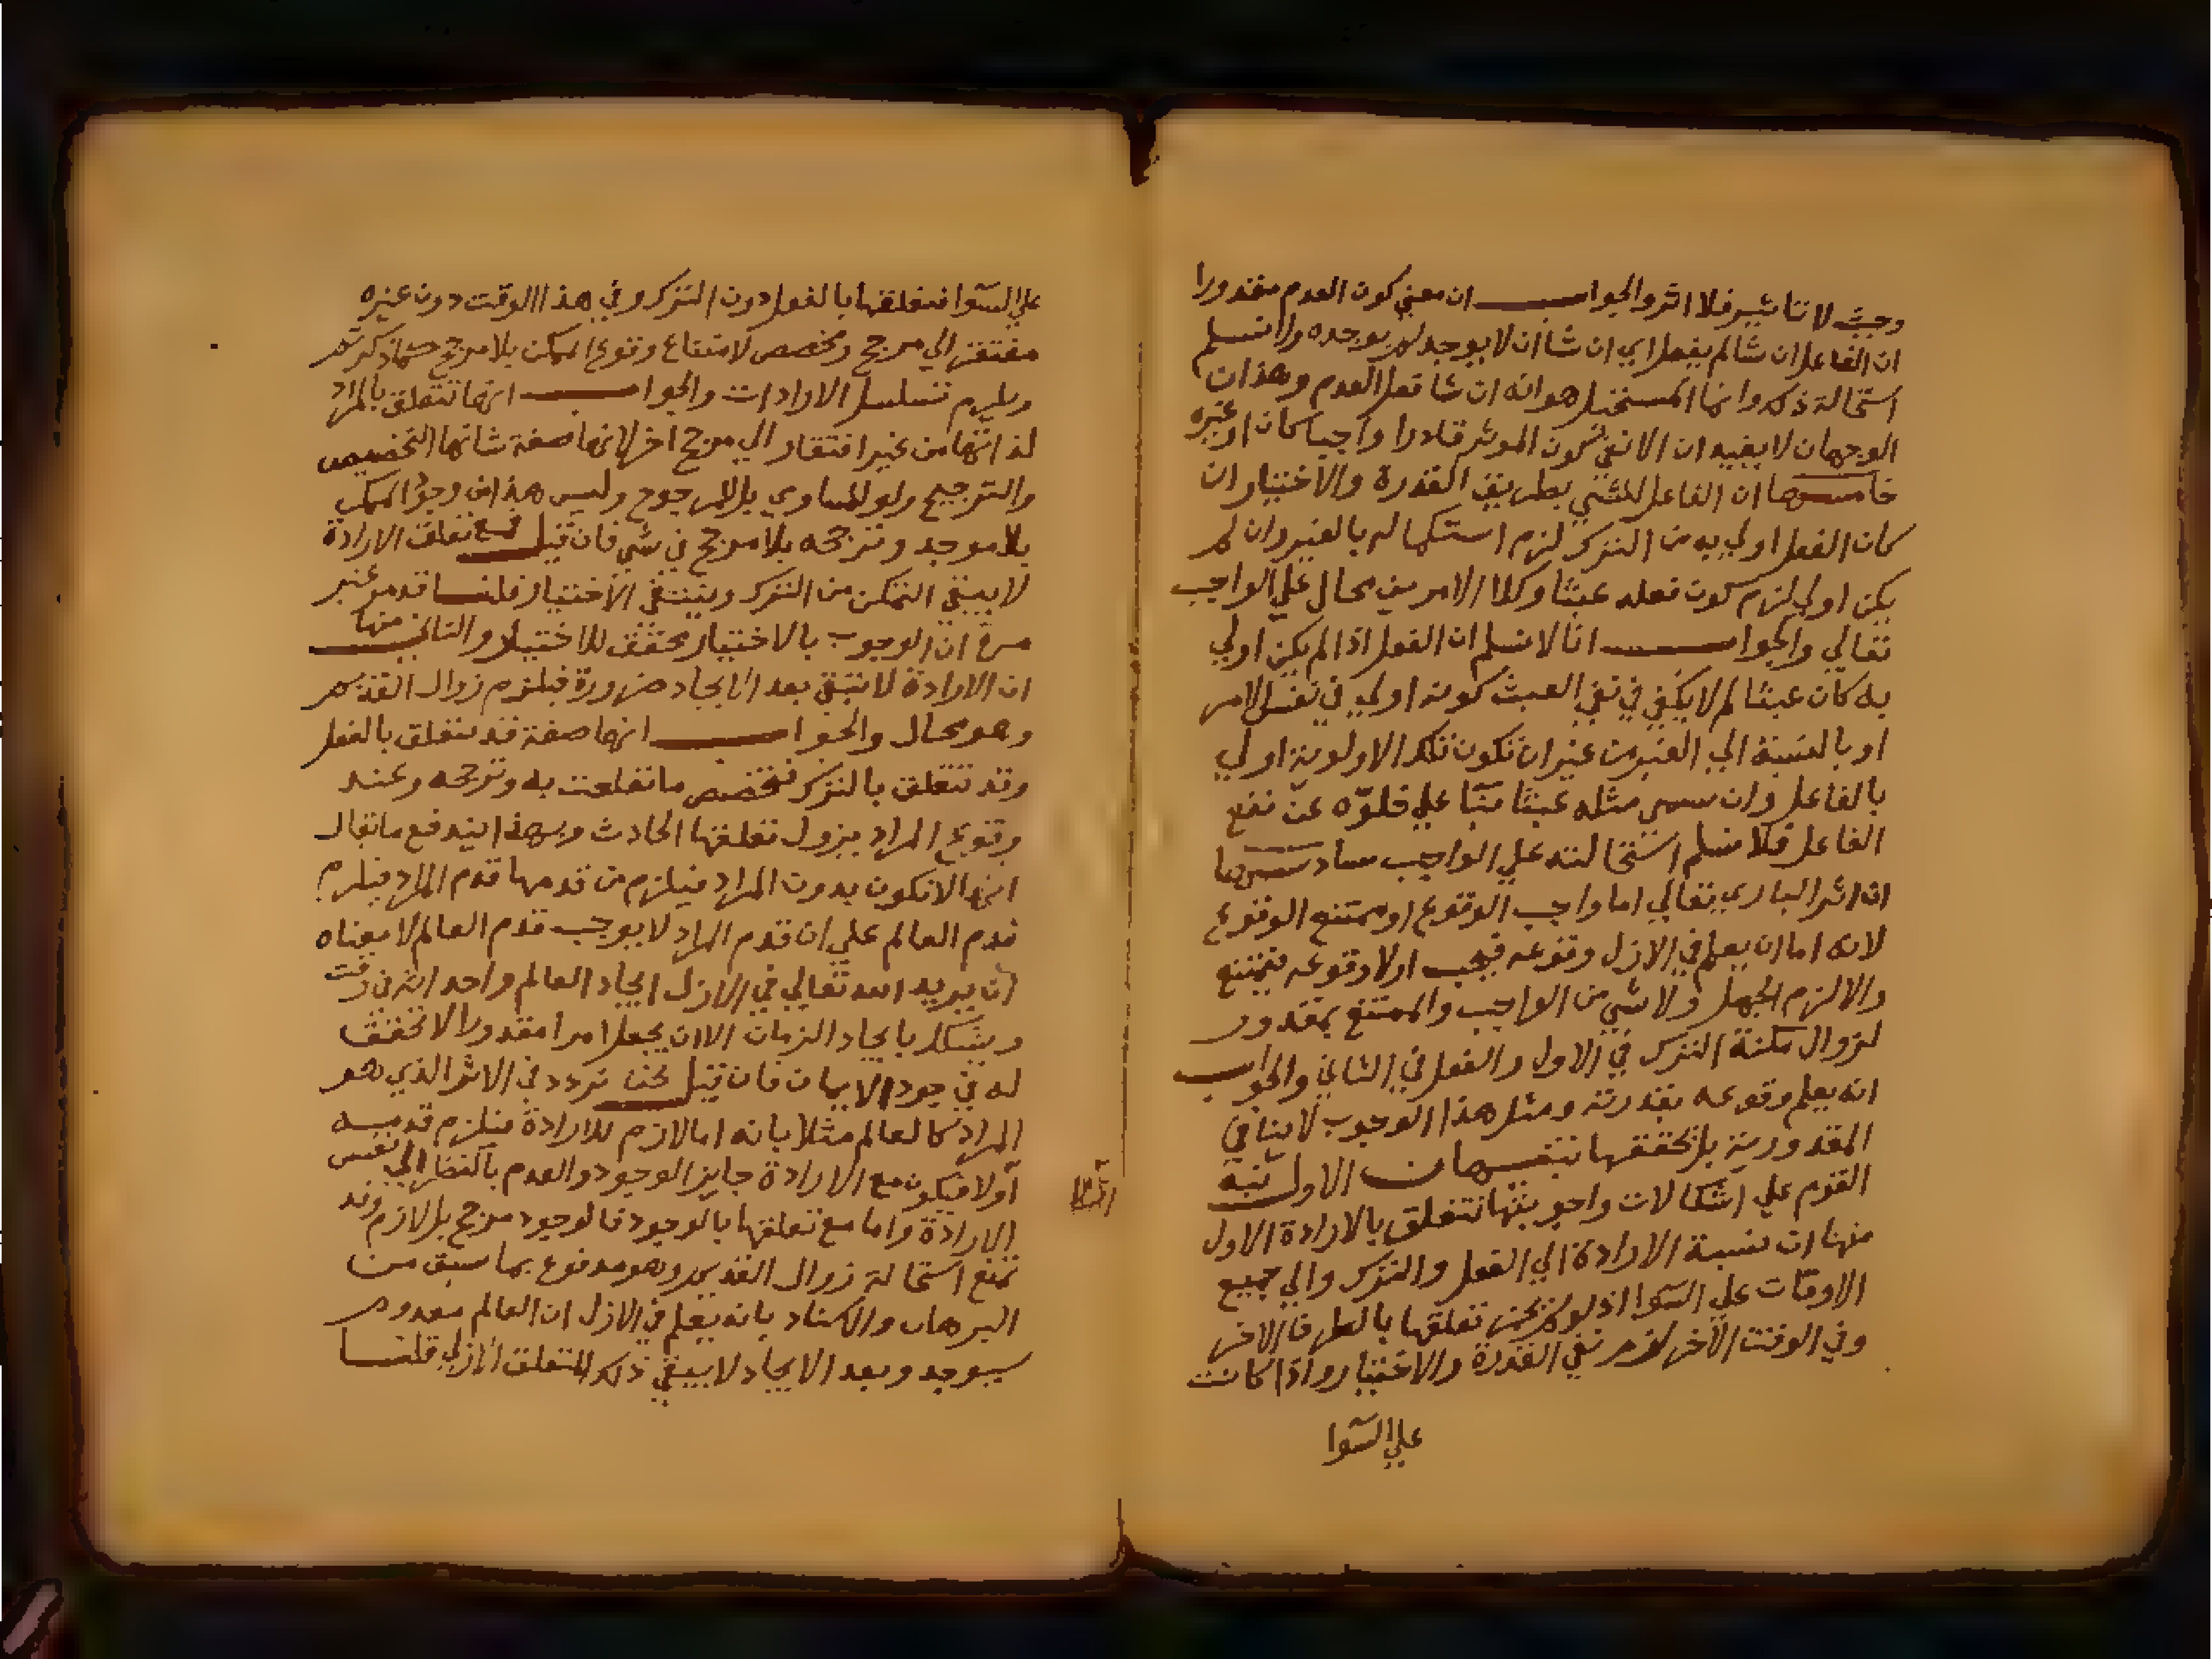 وحيث لا تاثير فلا اثر والجواب ان معني كون العدم مقدورا
ان الفاعل ان شا لم يفعل اي ان شا ان لا يوجد لم يوجده ولا نسلم
استحالة ذلك وانما المستحيل هو انه ان شا فعل العدم وهذان
الوجهان لا يفيدان الا نفي كون الموثر قادرا واجبا كان او غيره
خامسها ان الفاعل للشي بطريق القدرة والاختيار ان
كان الفعل اولي به من الترك لزم استكماله بالغير وان لم
يكن اولي لزم كون فعله عبثا وكلا الامرين محال علي الواجب
تعالي والجواب انا لا نسلم ان الفعل اذا لم يكن اولي
به كان عبثا لم لا يكفي في نفي العبث كونه اولي في نفس الامر
او بالنسبة الي الغير من غير ان تكون تلك الاولوية اولي
بالفاعل وان سمي مثله عبثا بنا علي خلوه عن نفع
الفاعل فلا نسلم استحالته علي الواجب سادسها
ان اثر الباري تعالي اما واجب الوقوع او ممتنع الوقوع
لانه اما ان يعلم في الازل وقوعه فيجب اولا وقوعه فيمتنع
والا لزم الجهل ولا شي من الواجب والممتنع بمقدور
لزوال مكنة الترك في الاول والفعل في الثاني والجواب
انه يعلم وقوعه بقدرته ومثل هذا الوجوب لا ينافي
المقدورية بل يحققها تنبيهان الاول نبه
القوم علي اشكالات واجوبتها تتعلق بالارادة الاول
منها ان نسبة الارادة الي الفعل والترك والي جميع
الاوقات علي السوا اذ لو لم يجز تعلقها بالطرف الاخر
وفي الوقت الآخر لزم نفي القدرة والاختيار واذا كانت
علي السوا
علي السوا فتعلقها بالفعل دون الترك وفي هذا الوقت دون غيره
مفتقر الي مرجح ومخصص لامتناع وقوع الممكن بلا مرجح كما ذكرتم
ويلزم تسلسل الارادات والجواب انها تتعلق بالمراد
لذاتها من غير افتقار الي مرجح اخر لانها صفة شانها التخصيص
والترجيح ولو للمساوي بل المرجوح وليس هذا من وجود الممكن
بلا موجد وترجحه بلا مرجح في شي فان قيل مع تعلق الارادة
لا يبقي التمكن من الترك وينتفي الاختيار قلنا قد مر غير
مرة ان الوجوب بالاختيار محقق للاختيار والثاني منها
ان الارادة لا تبقي بعد الايجاد ضرورة فيلزم زوال القديم
وهو محال والجواب انها صفة قد تتعلق بالفعل
وقد تتعلق بالترك فتخصص ما تعلقت به وترجحه وعند
وقوع المراد يزول تعلقها الحادث وبهذا يندفع ما يقال
انها لا تكون بدون المراد فيلزم من قدمها قدم المراد فيلزم
قدم العالم علي ان قدم المراد لا يوجب قدم العالم لا معناه
ان يريد الله تعالي في الازل ايجاد العالم واحداثه في وقته
ويشكل بايجاد الزمان الا ان يجعل امرا مقدورا لا تحقق
له في الاعيان فان قيل نحن نردد في الاثر الذي هو
المراد كالعالم مثلا بانه اما لازم للارادة فيلزم قدمه
اولا فيكون مع الارادة جايز الوجود والعدم بالنظر الي نفس
الارادة واما مع تعلقها بالوجود فالوجود مرجح بل لازم وقد
تمنع استحالة زوال القديم وهو مدفوع بما سبق من
البرهان والاستناد بانه يعلم في الازل ان العالم معدوم
سيوجد وبعد الايجاد لا يبقي ذلك التعلق الازلي قلنا